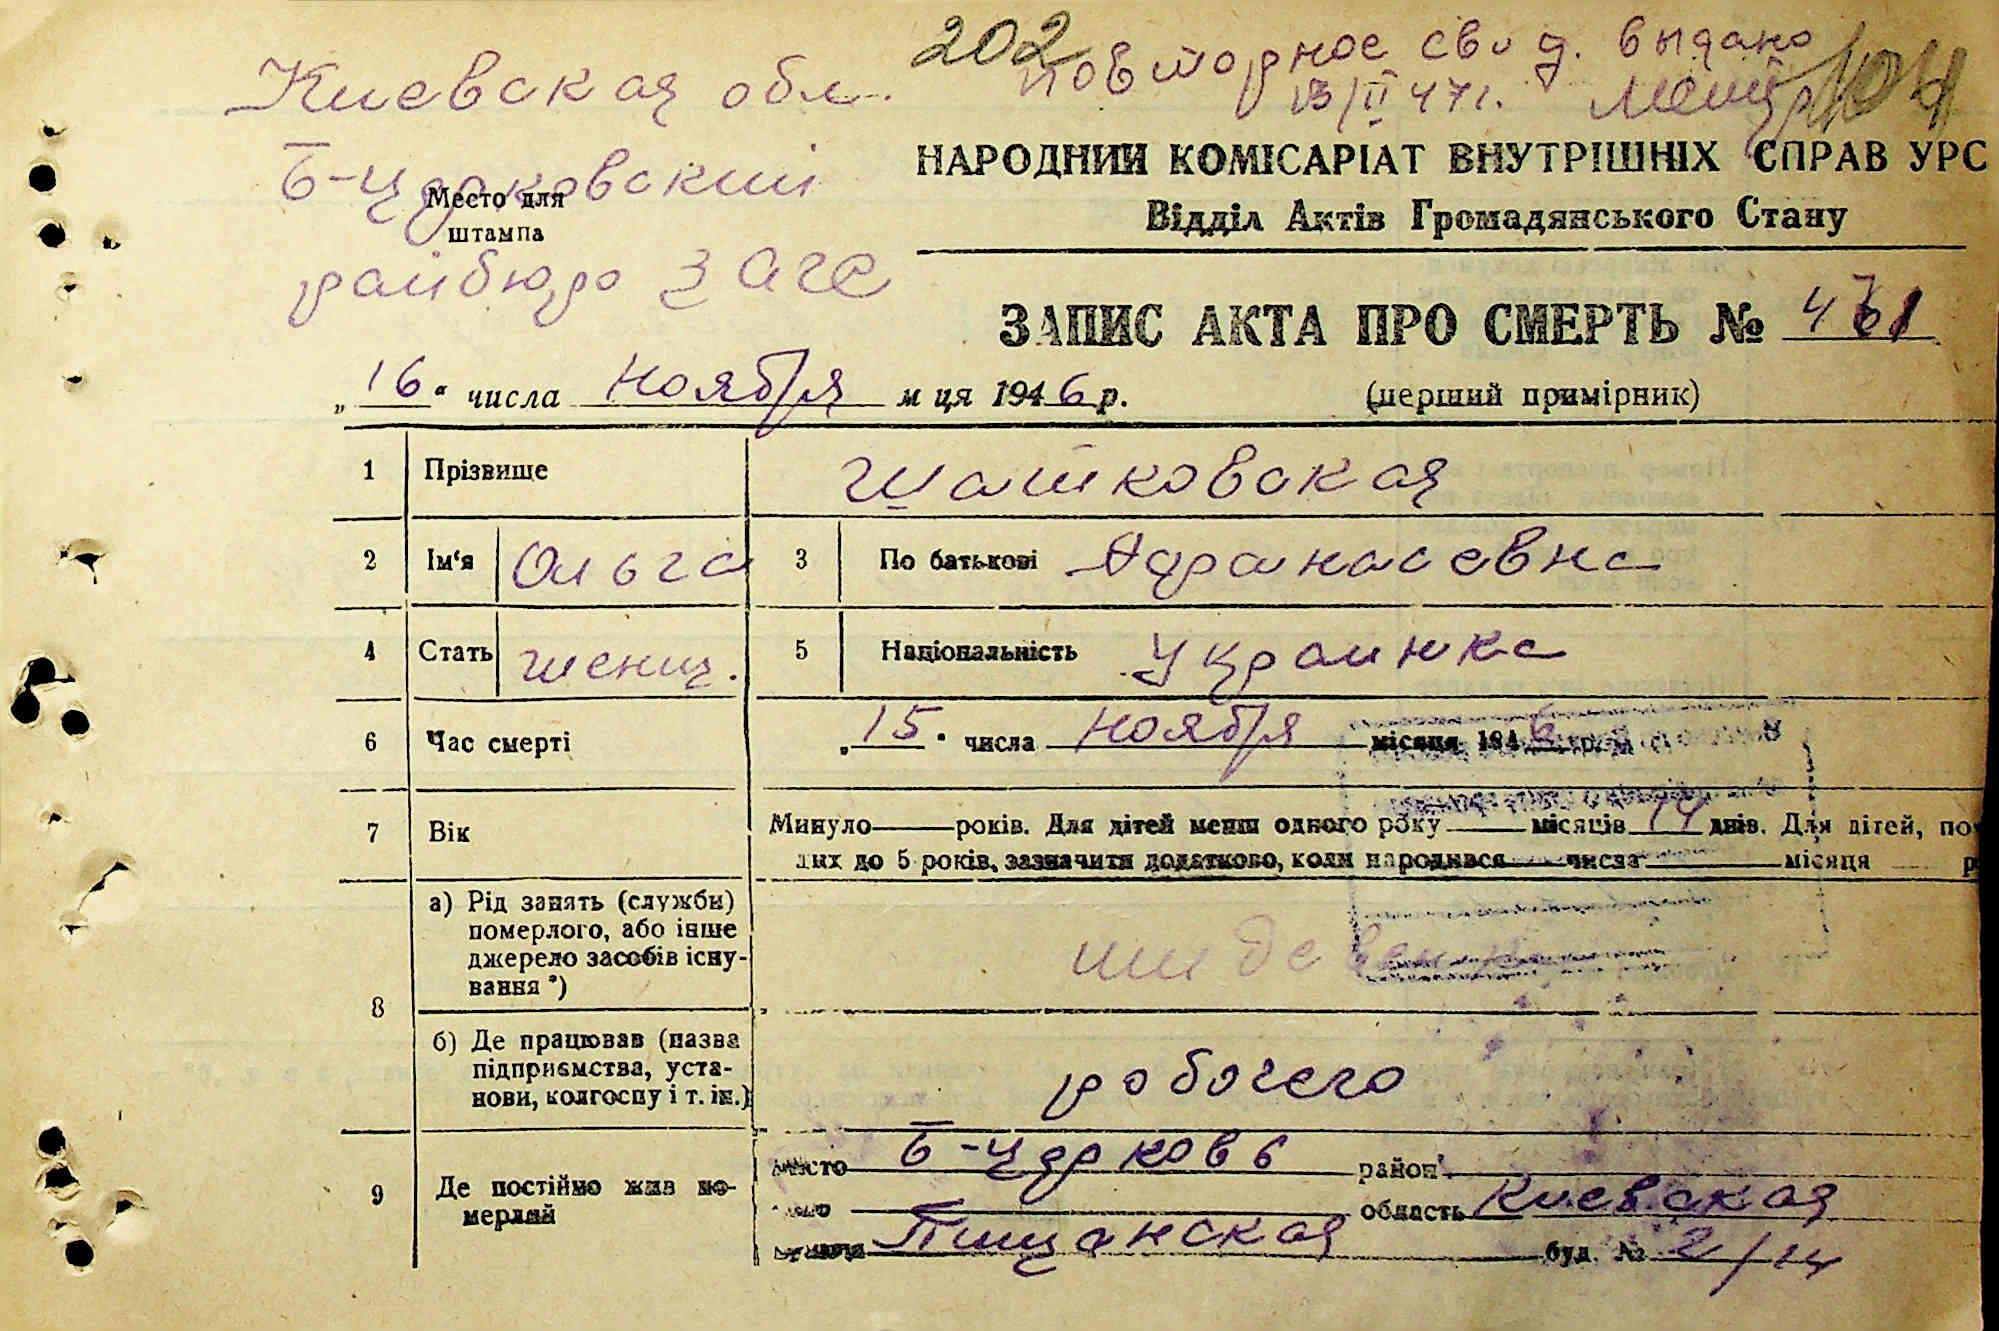 202 повторное свид. выдано
13/II 47г.
Киевская обл.
Б-Церковский
Место для
штампа
райбюро Загс
НАРОДНИЙ КОМІСАРІАТ ВНУТРІШНІХ СПРАВ УРС
Відділ Актів Громадянського Стану
ЗАПИС АКТА ПРО СМЕРТЬ № 471
„16“ числа ноября м ця 1946 р. (перший примірник)
1 Прізвище Шатковская
2 Ім'я Ольга 3 По батькові Афанасевна
4 Стать женщ. 5 Національність Украинка
6 Час смерті „15“ числа ноября місяця 1946
7 Вік Минуло років. Для дітей менш одного року місяців 14 днів. Для дітей, по
лих до 5 років, зазначити додатково, коли народився числа місяця р
8 а) Рід занять (служби)
померлого, або інше
джерело засобів існу-
вання *)
иждевен
б) Де працював (назва
підприємства, уста-
нови, колгоспу і т. ін.)
рабочего
9 Де постійно жив по-
мерлий
місто Б-Церковь район
область Киевская
вулиця Пищанская буд. №